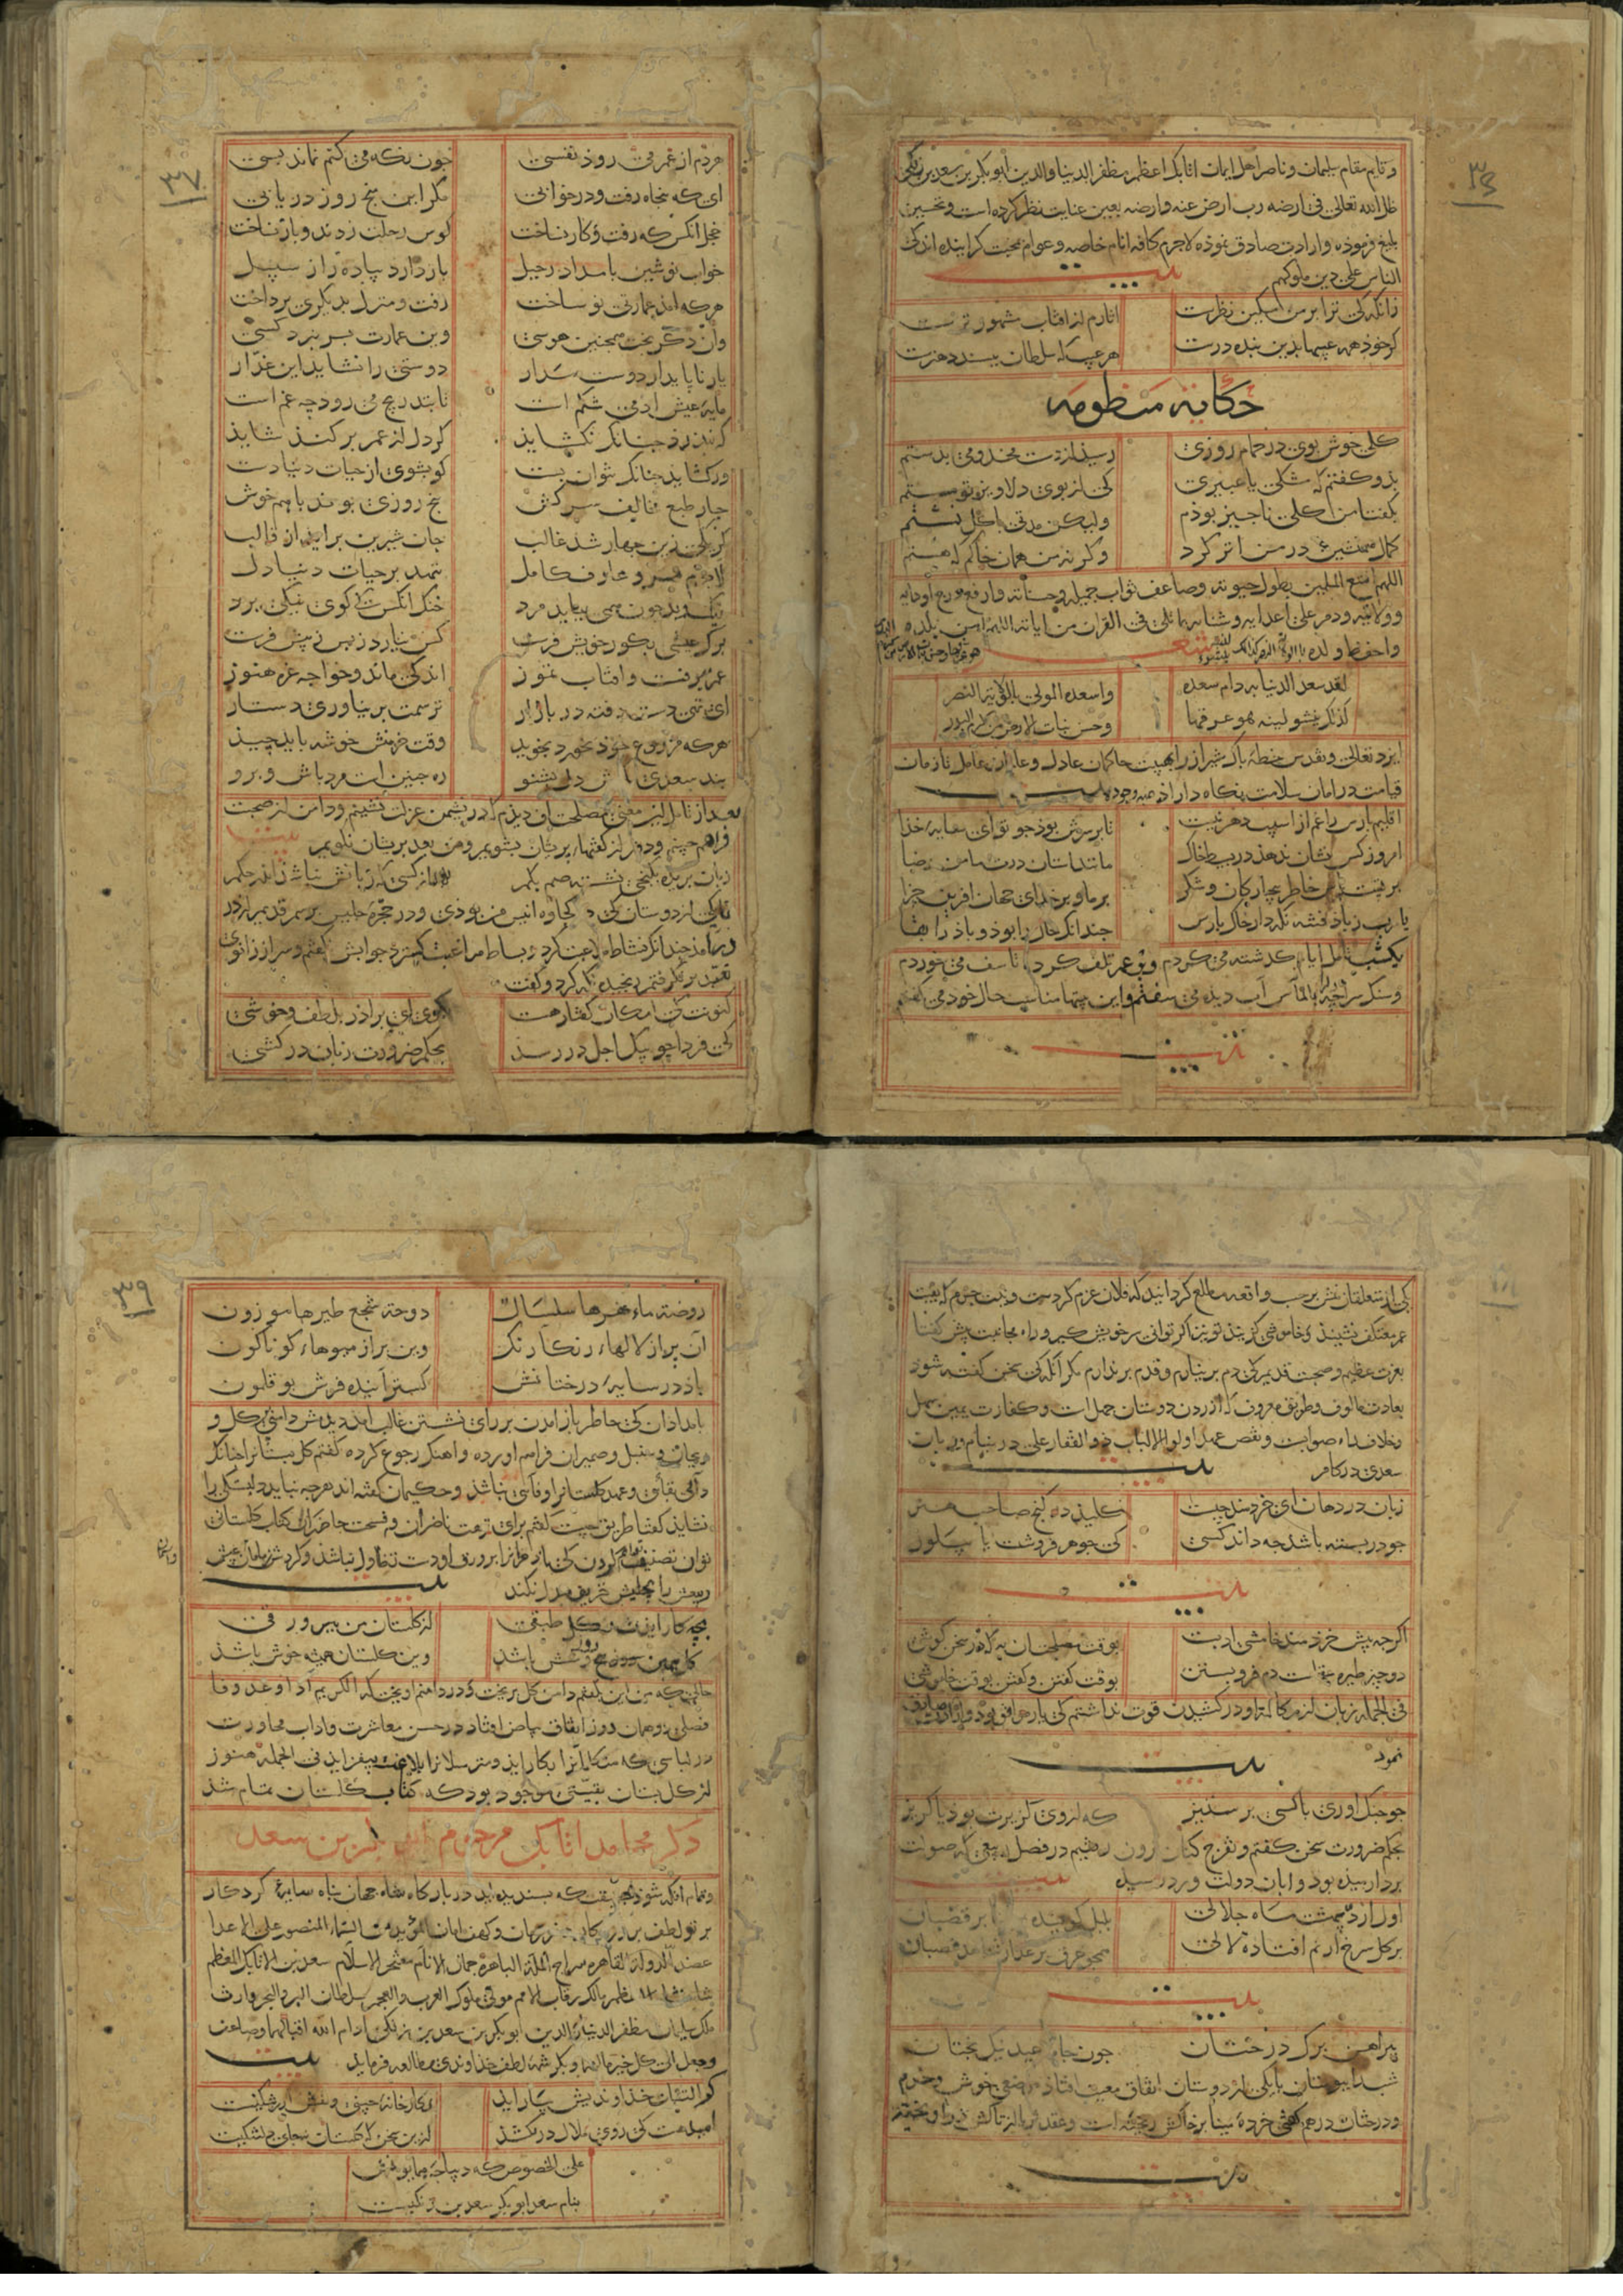 ۳۶
وقایم مقام سلیمان وناصر اهل ایمان اتابک اعظم مظفر الدنیا والدین ابوبکر بن سعد بن زنکی
ظل الله تعالی فی ارضه رب ارض عنه وارضه بعین عنایت نظر کرده است وتحسین
بلیغ فرموده وارادت صادق نموده لاجرم کافه انام خاصه وعوام بمحبت کراینده اند کی
الناس علی دین ملوکهم بیت
زانکه کی ترا بر من مسکین نظرست اثارم از افتاب مشهورترست
کر خود همه عیبها بدین بنده درست هر عیب که سلطان بپسندد هنرست
حکایه منظومه
کلی خوش بوی در حمام روزی رسید از دست مخدومی بدستم
بذو کفتم که مشکی یا عبیری کی از بوی دلاویز تو مستم
بکفتا من کلی ناچیز بوذم ولیکن مدتی با کل نشستم
کمال همنشین در من اثر کرد وکرنه من همان خاکم که هستم
اللهم متع المسلمین بطول حیوته وضاعف ثواب جمیله وحسناته وارفع درج اودایه
وولاته ودمر علی اعدایه وشناته بما تلی فی القران من ایاته اللهم امن بلده
واحفظ ولده شعر
لقد سعد الدنیا به دام سعده وایده المولی بالویة النصر
کذلک ینشو لینة هو عرقها وحسن نبات الارض من کرم البذر
ایزد تعالی وتقدس خطه پاک شیراز را بهیبت حاکمان عادل وعالمان عامل تا زمان
قیامت در امان سلامت نکاه داراذ بیت
اقلیم پارس را غم از اسیب دهر نیست تا بر سرش بوذ چو توای سایه خذا
امروز کس نشان ندهذ در بسیط خاک مانند استان درت مامن رضا
بر تست پاس خاطر بیچارکان وشکر بر ما وبر خذای جهان افرین جزا
یا رب ز باد فتنه نکه دار خاک پارس چندانکه خاک را بوذ وباذ را بقا
یکشب تامل ایام کذشته می کردم وبر عمر تلف کرده تاسف می خوردم
وسنک سراچه دل بالماس آب دیده می سفتم واین بیتها مناسب حال خود می کفتم
بیت
۳۷
هردم از عمر می روذ نفسی چون نکه می کنم نماند بسی
ای که پنجاه رفت ودر خوابی مکر این پنج روز دریابی
خجل انکس که رفت وکار نساخت کوس رحلت زدند وبار نساخت
خواب نوشین بامداد رحیل باز دارد پیاده را ز سبیل
هر که امذ عمارتی نو ساخت رفت ومنزل بدیکری پرداخت
وان دکر پخت همچنین هوسی وین عمارت بسر نبرد کسی
یار ناپایدار دوست مدار دوستی را نشاید این غدار
مایه عیش ادمی شکم است تا بتدریج می رود چه غم است
کر ببندد چنانکه نکشاید کر دل از عمر برکند شاید
ور کشاید چنانکه نتوان بست کو بشوی از حیات دنیا دست
چار طبع مخالف سرکش پنج روزی بوند با هم خوش
کر یکی زین چهار شد غالب جان شیرین براید از قالب
لاجرم مرد عارف کامل ننهد بر حیات دنیا دل
نیک وبد چون همی بباید مرد خنک انکس که کوی نیکی برد
برک عیشی بکور خویش فرست کس نیارد ز پس ز پیش فرست
عمر برفست وافتاب تموز اندکی ماند وخواجه غره هنوز
ای تهی دست رفته در بازار ترسمت بر نیاوری دستار
هر که مزروع خود بخورد بخوید وقت خرمنش خوشه باید چید
پند سعدی بکوش دل بشنو ره چنین است مرد باش وبرو
بعد از تامل این معنی مصلحت ان دیدم که در نشیمن عزلت نشینم ودامن از صحبت
فراهم چینم ودفتر از کفتهاء پریشان بشویم ومن بعد پریشان نکویم بیت
زبان بریده بکنجی نشسته صم بکم به از کسی که زبانش نباشذ اندر حکم
تا یکی از دوستان کی در کجاوه انیس من بوذی ودر حجره جلیس برسم قدیم از در
درامذ چندانکه نشاط ملاعبت کرد وبساط مداعبت کسترد جوابش نکفتم وسر از زانوی
تعبد بر نکرفتم رنجیده نکه کرد وکفت
کنونت که امکان کفتار هست بکوی ای براذر بلطف وخوشی
کی فردا چو پیک اجل در رسد بحکم ضرورت زبان درکشی
کی از متعلقان منش بر حسب واقعه مطلع کردانید که فلان عزم کردست ونیت جزم که بقیت
عمر معتکف نشیند وخاموشی کزیند تو نیز اکر توانی سر خویش کیر وراه مجانبت پیش کفتا
بعزت عظیم وصحبت قدیم کی دم بر نیارم وقدم بر ندارم مکر آنکه کی سخن کفته شود
بعادت مالوف وطریق معروف که ازردن دوستان جهل است وکفارت یمین سهل
وخلاف راه صوابست ونقض عهد اولوا الالباب ذو الفقار علی در نیام وزبان
سعدی در کام بیت
زبان در دهان ای خردمند چیست کلید در کنج صاحب هنر
چو در بسته باشد چه داند کسی کی جوهر فروشست یا پیلور
بیت
اکرچه پیش خردمند خامشی ادبست بوقت مصلحت ان به که در سخن کوشی
دو چیز طیره عقل است دم فرو بستن بوقت کفتن وکفتن بوقت خاموشی
فی الجمله زبان از مکالمه او در کشیدن قوت نداشتم کی یار موافق بود وارادت صادق
نمود بیت
چو جنک اوری با کسی بر ستیز که از وی کزیرت بوذ یا کریز
بحکم ضرورت سخن کفتم وتفرج کنان برون رفتیم در فصل ربیعی که صولت
برد ارمیده بود واوان دولت ورد رسیده بیت
اول اردیبهشت ماه جلالی بلبل کوینده بر منابر قضبان
بر کل سرخ از نم افتاده لالی همچو عرق بر عذار شاهد غضبان
بیت
پیراهن برک بر درختان چون جامه عید نیک بختان
شب را ببوستان با یکی از دوستان اتفاق مبیت افتاد موضعی خوش وخرم
ودرختان درهم کفتی خرده مینا بر خاکش ریخته است وعقد ثریا از تاکش در اویخته
بیت
۳۹
روضة ماء نهرها سلسال دوحة سجع طیرها موزون
آن پر از لالهاء رنکارنک وین پر از میوهاء کوناکون
باذ در سایه درختانش کسترانیده فرش بوقلمون
بامدادان کی خاطر باز امدن بر رای نشستن غالب امد دیدمش دامنی پر کل و
ریحان وسنبل وضمیران فراهم اورده واهنک رجوع کرده کفتم کل بستانرا چنانکه
دانی بقائی وعهد کلستانرا وفائی نباشذ وحکیمان کفته اند هر چه نپاید دلبستکی را
نشاید کفتا طریق چیست کفتم برای نزهت ناظران وفسحت حاضران کتاب کلستانی
توان تصنیف کردن کی باد خزانرا بر ورق او دست تطاول نباشذ وکردش زمان عیش
ربیعش را بطیش خریف مبدل نکند بیت
بچه کار ایدت ز کل طبقی از کلستان من ببر ورقی
کل همین پنج روز وشش باشد وین کلستان همیشه خوش باشذ
حالی که من این بکفتم دامن کل بریخت ودر دامنم اویخت که الکریم اذا وعد وفا
فصلی دو همان روز اتفاق بیاض افتاد در حسن معاشرت واداب محاورت
در لباسی که متکلمانرا بکار اید ومترسلانرا بلاغت بیفزاید فی الجمله هنوز
از کل بستان بقیتی موجود بود که کتاب کلستان تمام شد
ذکر محامد اتابک مرحوم ابی بکر بن سعد
وتمام انکه شود بحقیقت که پسندیده اید در بارکاه شاه جهان پناه سایه کردکار
پرتو لطف پروردکار ذخر زمان وکهف امان المؤید من السماء المنصور علی الاعدا
عضد الدولة القاهره سراج الملة الباهرة جمال الانام مفخر الاسلام سعد بن الاتابک المعظم
شاهنشاه المعظم مالک رقاب الامم مولی ملوک العرب والعجم سلطان البر والبحر وارث
ملک سلیمان مظفر الدنیا والدین ابو بکر بن سعد بن زنکی ادام الله اقبالهما وضاعف
وجعل الی کل خیر مالهما وبکرشمه لطف خذاوندی مطالعه فرماید بیت
کر التفات خذاوندیش بیاراید نکارخانه چینی ونقش ارتنکیست
امیدهست کی روی ملال در نکشد ازین سخن که کلستان نه جای دلتنکیست
علی الخصوص که دیباچه همایونش
بنام سعد ابو بکر سعد بن زنکیست